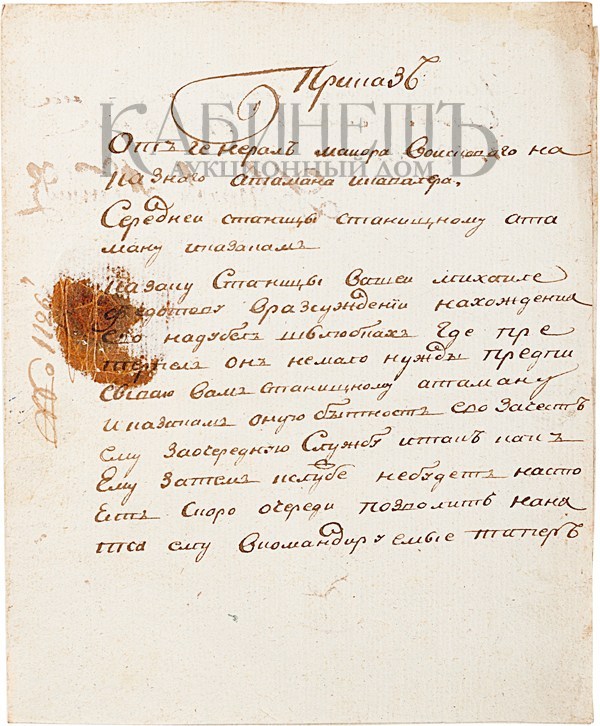 Приказъ
КАБИНЕТЪ
АУКЦИОННЫЙ ДОМ
Отъ Генералъ маиора Воисковаго на
казного атамана и кавалера.
Середнеи станицы станишному ата
ману иказакамъ
казаку Станицы Вашеи михаиле
федотову вразсуждении нахождения
Его надубес Где пре
терпел онъ немало нужды предпи
сываю вамъ станишному атаману
иказакамъ оную бытность его Зачесть
ему заочередную Службу итакъ какъ
Ему затемъ кслубе небудетъ насто
Ять скоро очереди позволить наня
тца ему вкомандируемые таперъ
№ 11196